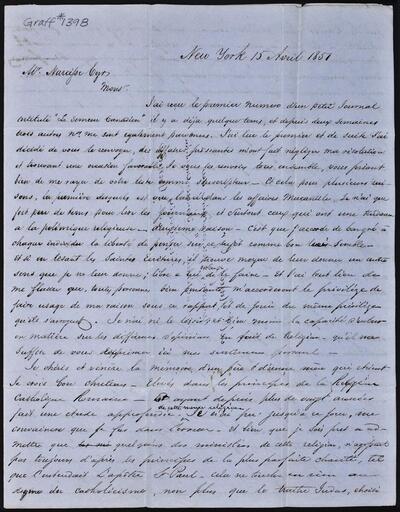 Graff #1398
New York 15 Avril 1851
Mr. Narcisse Cyr
Monsr.
J'ai reçu le premier numero d'un petit Journal
intitulé "Le Semeur Canadien" il y a déja quelque tems, et depuis deux semaines
trois autres nos. me sont également parvenus. J'ai lu le premier et de suite j'ai
décidé de vous le renvoyer, des affaires pressantes m'ont fait négliger ma résolution
et trouvant une occasion favorable Je vous les renvois tous ensemble, vous priant
bien de me rayer de votre liste comme Souscripteur - Et cela pour plusieurs rai-
sons, la première desquels est que dans les affaires Mercantiles Je n'ai que
fort peu de tems pour lire les journaux et surtout ceux qui ont une
à la polémique religieuse - deuxième raison - c'est que j'accorde de bon gré à
chaque individu la liberté de penser sur ce sujet comme bon lui semble -
et si en lisant les Saintes Ecritures, il trouve moyen de leur donner un autre
sens que je ne leur donne; libre à lui de le faire - et j'ai tout lieu de
me flatter que, toute personne bien pensante, m'accorderont le privilège de
faire usage de ma raison sous ce rapport et de jouir du même privilège
qu'ils Je n'ai ni le loisir et bien moins la capacité d'entrer
en matière sur les différentes opinions en fait de Religion, qu'il me
suffise de vous exprimer ici mes sentimens personnel -
Je chéris et vénère la mémoire d'un père & d'une mère qui étaient
Je crois bon chrétiens - Elevés dans les principes de la Religion
Catholique Romaine - et ayant depuis plus de vingt années
fait une étude approfondie de cette même religion jusqu'à ce jour, me
convaincre que je suis dans l'erreur - et bien que je sois prêt a ad-
mettre que quelqu'uns des ministres de cette religion, n'agissent
pas toujours d'après les principes de la plus parfaite charité, tel
que l'entendait l'apôtre St Paul - cela ne touche en rien au
dogme du catholicisme, non plus que le traitre Judas, choisi